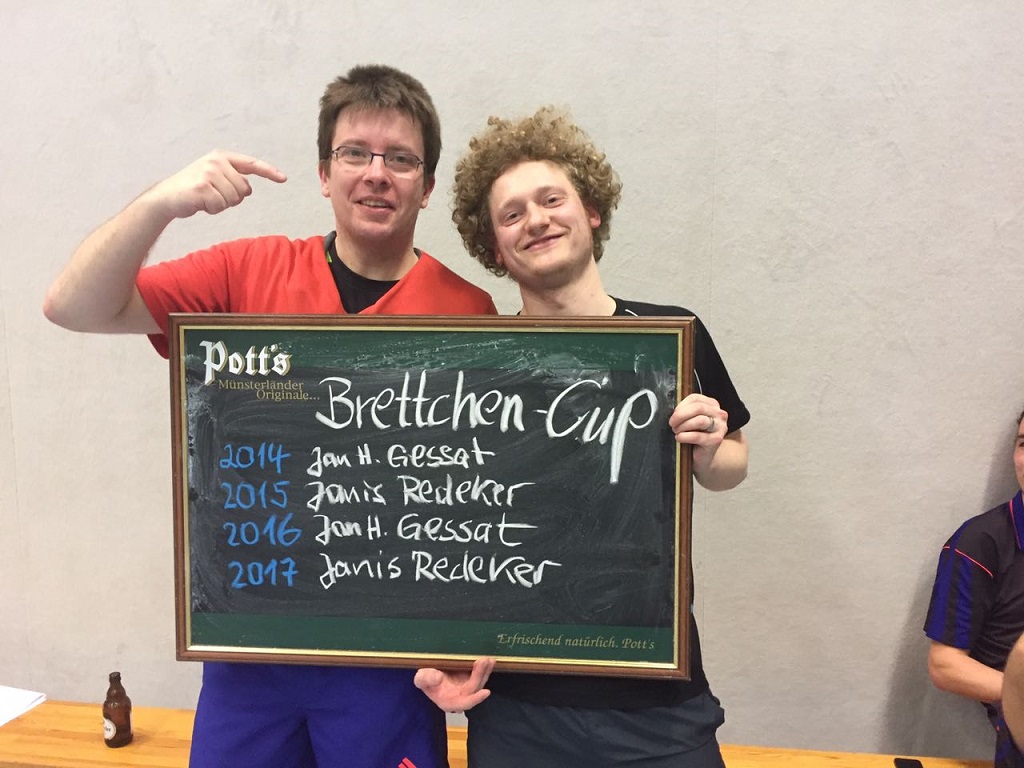 Pott's
Münsterländer
Originale...
Brettchen-Cup
2014 Jan H. Gessat
2015 Janis Redeker
2016 Jan H. Gessat
2017 Janis Redeker
Erfrischend natürlich. Pott's